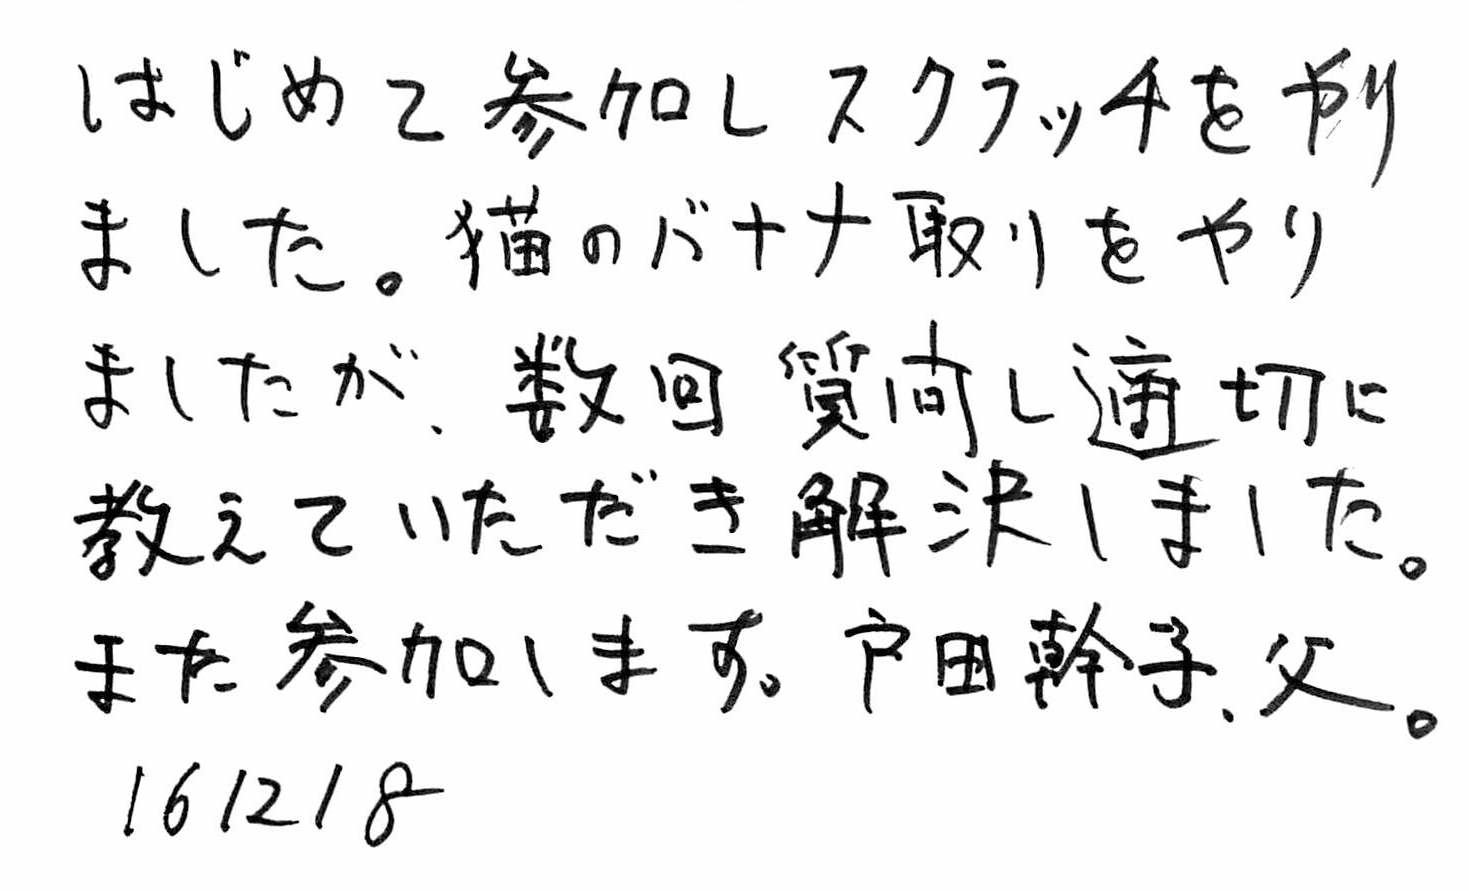 はじめて参加しスクラッチをやり
ました。猫のバナナ取りをやり
ましたが、数回質問し適切に
教えていただき解決しました。
また参加します。戸田幹子、父。
161218